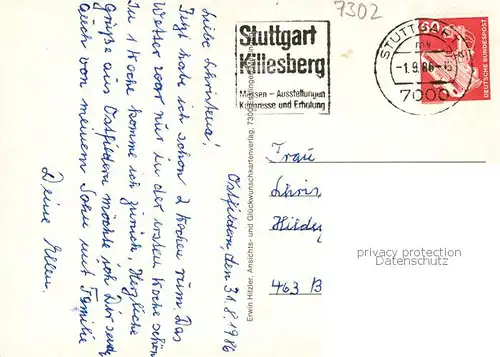 7302
Stuttgart
Killesberg
Messen – Ausstellungen
Kongresse und Erholung
STUTTGART
-1.9.86-
7000
60
DEUTSCHE BUNDESPOST
Ostfildern, den 31.8.1986
Liebe Christina!
Jetzt habe ich schon 2 Wochen rum. Das
Wetter war nur in der ersten Woche schön
In 1 Woche komme ich zurück. Herzliche
Grüße aus Ostfildern möchte ich Dir senden
auch von meinem Sohn mit Familie
Deine Ellen.
Erwin Hitzler, Ansichts- und Glückwunschkartenverlag, 730
Frau
Chris
Hilde
463 B
privacy protection
Datenschutz